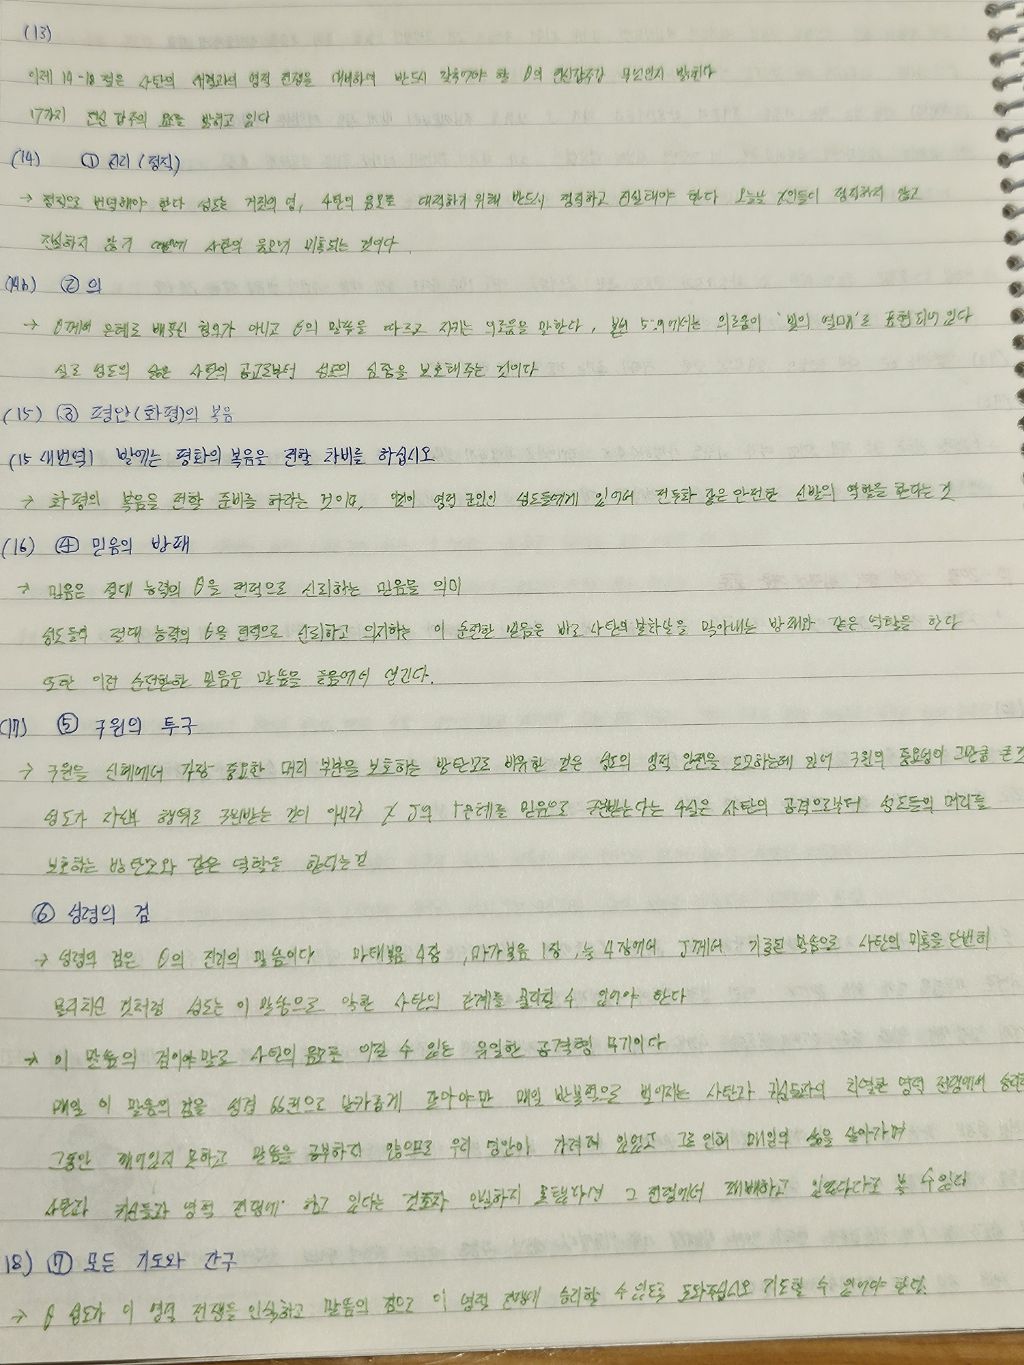 (13)
이제 14-18절은 사탄의 세력과의 영적 전쟁을 대비하여 반드시 갖추어야 할 θ의 전신갑주가 무엇인지 밝힌다
17가지 전신갑주의 요소를 밝히고 있다
(14) ① 진리(정직)
→ 정직으로 번역해야 한다 성도는 거짓의 영, 사탄의 음모로 대적하기 위해 반드시 정직하고 진실해야 한다 오늘날 X인들이 정직하지 않고
진실하지 않기 때문에 사탄의 음모에 미혹되는 것이다.
(14b) ② 의
→ θ께서 은혜로 베푸신 칭의가 아니고 θ의 말씀을 따르고 지키는 의로움을 말한다, 본서 5:9에서는 의로움이 '빛의 열매'로 표현되어 있다
실로 성도의 삶은 사탄의 공고로부터 성도의 심장을 보호해주는 것이다
(15) ③ 평안(화평)의 복음
(15 새번역) 발에는 평화의 복음을 전할 차비를 하십시오
→ 화평의 복음을 전할 준비를 하라는 것이며, 영적 군인인 성도들에게 있어서 전투화 같은 안전한 신발의 역할을 한다는 것
(16) ④ 믿음의 방패
→ 믿음은 절대 능력의 θ을 전적으로 신뢰하는 믿음을 의미
성도들이 절대 능력의 θ을 전적으로 신뢰하고 의지하는 이 순전한 믿음은 바로 사탄의 불화살을 막아내는 방패와 같은 역할을 한다
또한 이런 순전한 믿음은 말씀을 들음에서 생긴다.
(17) ⑤ 구원의 투구
→ 구원을 신체에서 가장 중요한 머리 부분을 보호하는 방탄모로 비유한 것은 성도의 영적 안전을 도모하는데 있어 구원의 중요성이 그만큼 큰 것
성도가 자신의 행위로 구원받는 것이 아니라 X J의 은혜를 믿음으로 구원받는다는 사실은 사탄의 공격으로부터 성도들의 머리를
보호하는 방탄모와 같은 역할을 한다는 것
⑥ 성령의 검
→ 성령의 검은 θ의 진리의 말씀이다 마태복음 4장, 마가복음 1장, 눅 4장에서 J께서 기록된 말씀으로 사탄의 미혹을 단번에
물리치신 것처럼 성도는 이 말씀으로 악한 사탄의 관계를 물리칠 수 있어야 한다
→ 이 말씀의 검이야말로 사탄의 음모를 이길 수 있는 유일한 공격형 무기이다
매일 이 말씀의 검을 성경 66권으로 날카롭게 갈아야만 매일 반복적으로 벌어지는 사탄과 귀신들과의 치열한 영적 전쟁에서 승리
그동안 깨어있지 못하고 말씀을 공부하지 않으므로 우리 영안이 가려져 있었고 그로 인해 매일의 삶을 살아가며
사탄과 귀신들과 영적 전쟁에 하고 있다는 것조차 인식하지 못했다면서 그 전쟁에서 패배하고 있었다고 볼 수 있다
18) ⑦ 모든 기도와 간구
→ θ 성도가 이 영적 전쟁을 인식하고 말씀의 검으로 이 영적 전쟁에 승리할 수 있도록 도와주십시오 기도할 수 있어야 한다.